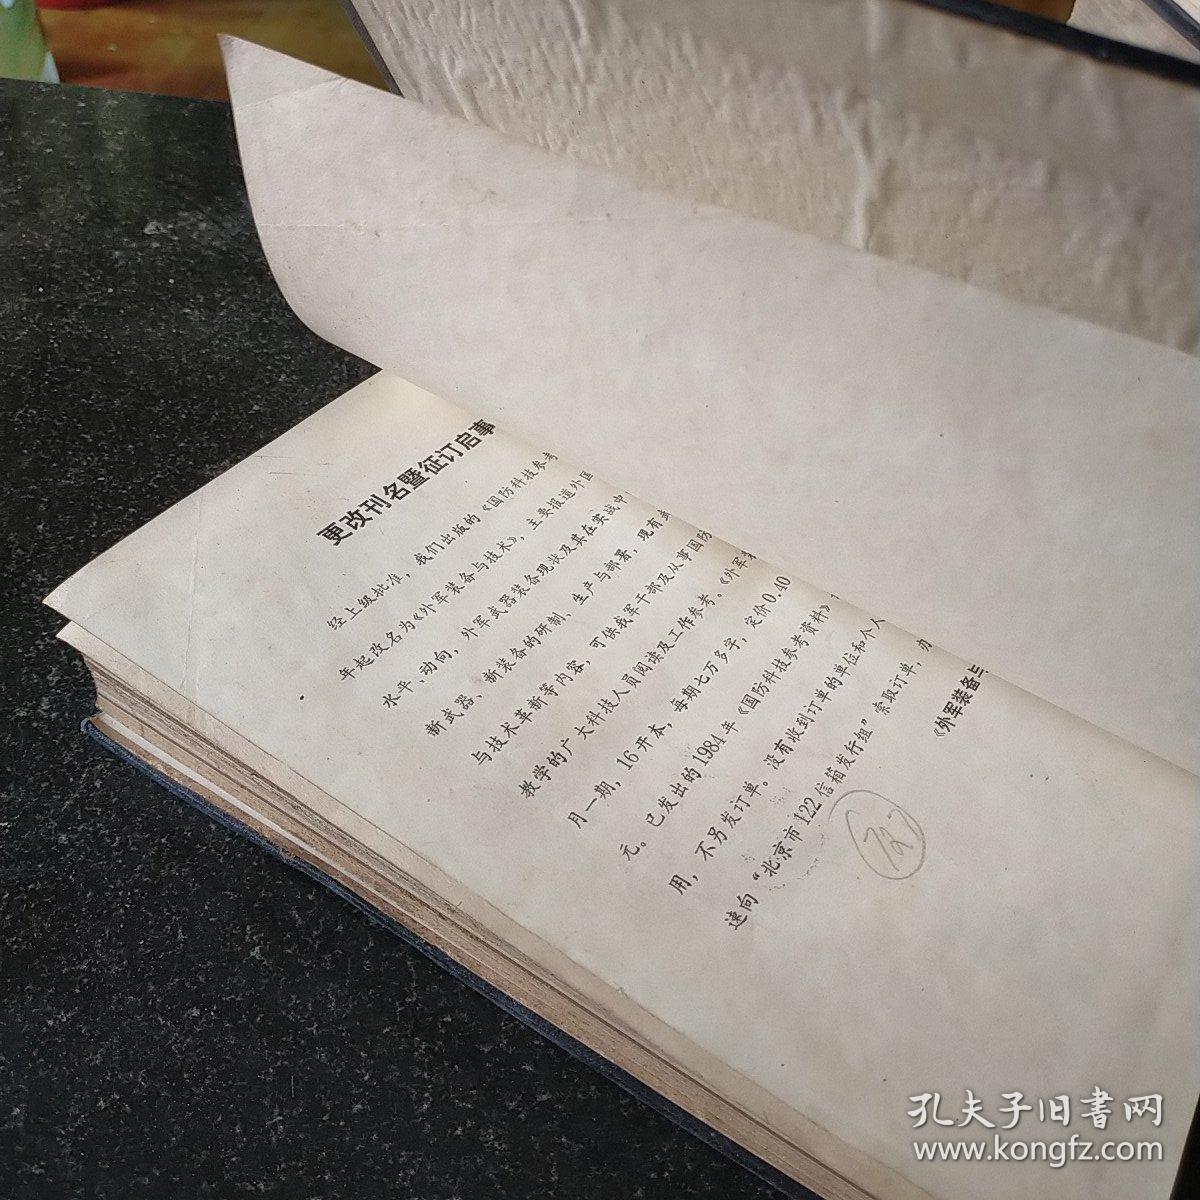 更改刊名暨征订启事
经上级批准，我们出版的《国防科技参考
年起改名为《外军装备与技术》，主要报道外国
水平、动向，外军武器装备现状及其在实战中
新武器、新装备的研制、生产与部署，现有
与技术革新等内容，可供我军干部及从事国防
教学的广大科技人员阅读及工作参考。《外军
月一期，16开本，每期七万多字，定价0.40
元。已发出的1984年《国防科技参考资料》
用，不另发订单。没有收到订单的单位和个人
速向“北京市122信箱发行组”索取订单，办
《外军装备与
孔夫子旧書网
www.kongfz.com